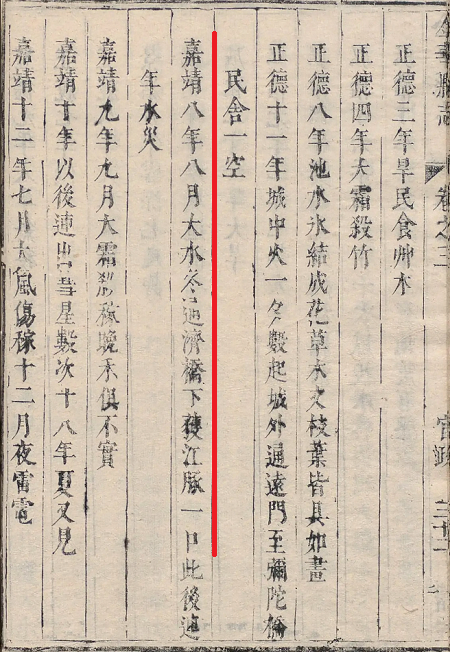 縣志
卷之三
正德三年旱民食艸木
正德四年大霜殺竹
正德八年池水氷結成花草木之枝葉皆具如畫
正德十一年城中火一夕數起城外通遠門至彌陀橋
民舍一空
嘉靖八年八月大水冬通濟橋下獲江豚一口此後連
年水災
嘉靖九年九月大霜殺稼晚禾俱不實
嘉靖十年以後連出彗星數次十八年夏又見
嘉靖十二年七月大風傷稼十二月夜雷電